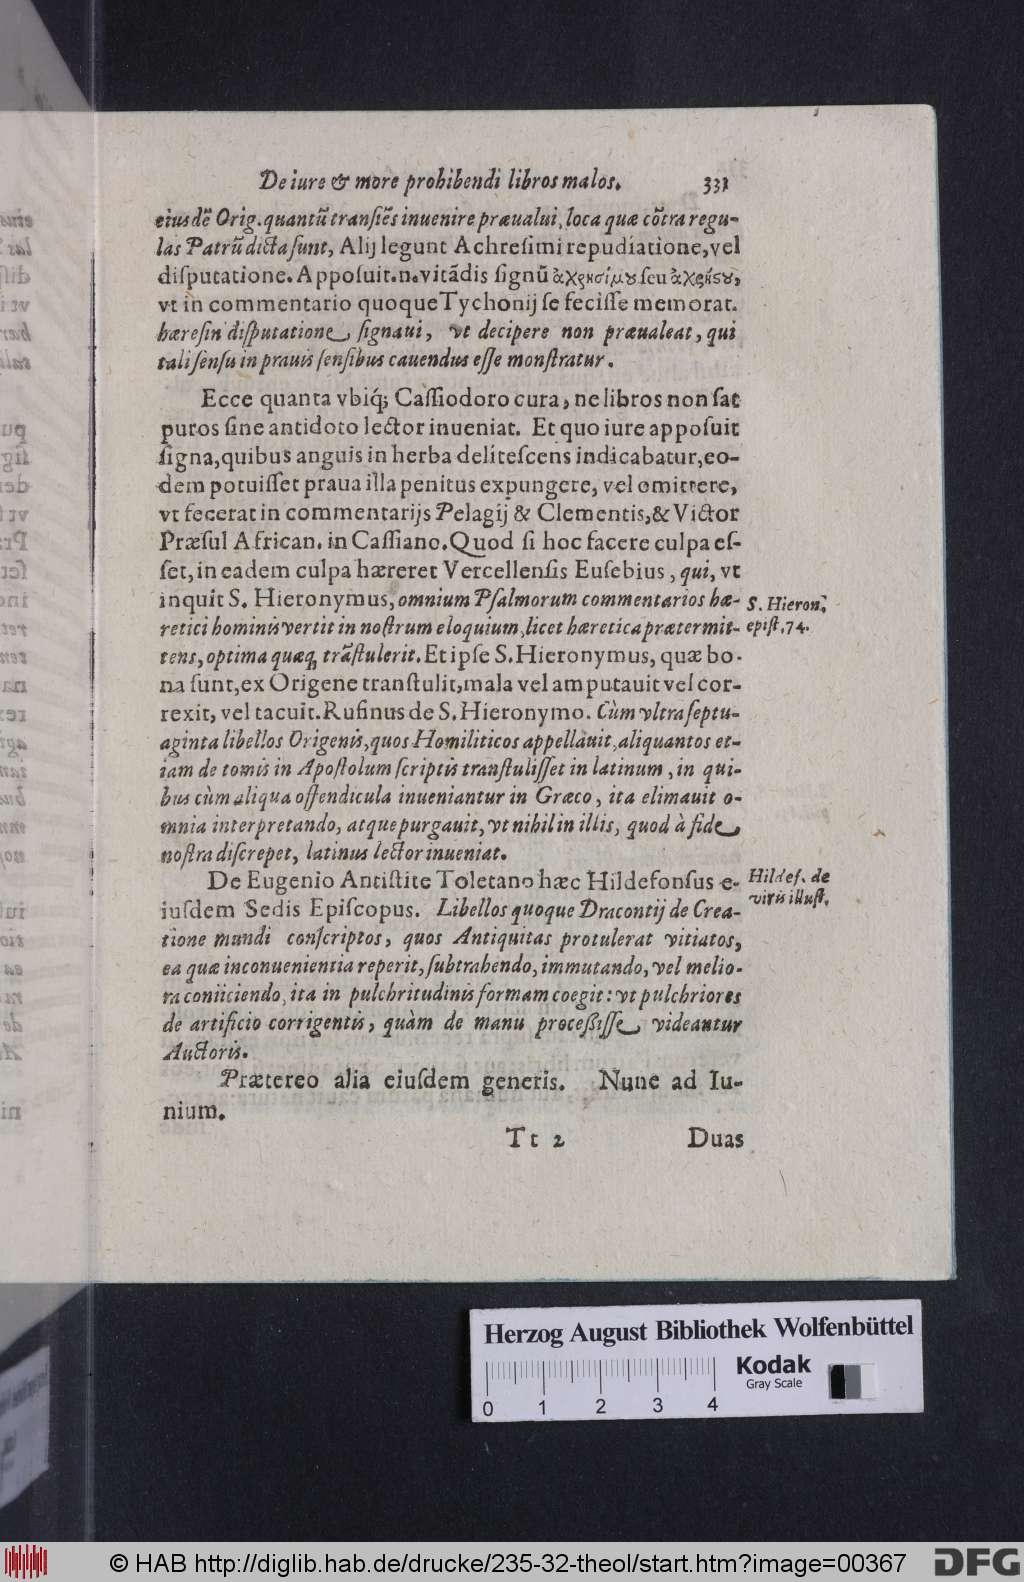 De iure & more prohibendi libros malos. 331
eiusdē Orig. quantū transiēs inuenire præualui, loca quæ cōtra regu-
las Patrū dicta sunt, Alij legunt Achresimi repudiatione, vel
disputatione. Apposuit.n. vitādis signū ἀχρησίμȣ seu ἀχρήστȣ,
vt in commentario quoque Tychonij se fecisse memorat.
hæresin disputatione signaui, vt decipere non præualeat, qui
tali sensu in prauis sensibus cauendus esse monstratur.
Ecce quanta vbiq; Cassiodoro cura, ne libros non sat
puros sine antidoto lector inueniat. Et quo iure apposuit
signa, quibus anguis in herba delitescens indicabatur, eo-
dem potuisset praua illa penitus expungere, vel omittere,
vt fecerat in commentarijs Pelagij & Clementis, & Victor
Præsul African. in Cassiano. Quod si hoc facere culpa es-
set, in eadem culpa hæreret Vercellensis Eusebius, qui, vt
inquit S. Hieronymus, omnium Psalmorum commentarios hæ-
retici hominis vertit in nostrum eloquium, licet hæretica prætermit-
tens, optima quæq; trāstulerit. Et ipse S. Hieronymus, quæ bo-
na sunt, ex Origene transtulit, mala vel amputauit vel cor-
rexit, vel tacuit. Rufinus de S. Hieronymo. Cùm vltra septu-
aginta libellos Origenis, quos Homiliticos appellauit, aliquantos et-
iam de tomis in Apostolum scriptis transtulisset in latinum, in qui-
bus cùm aliqua offendicula inueniantur in Græco, ita elimauit o-
mnia interpretando, atque purgauit, vt nihil in illis, quod à fide
nostra discrepet, latinus lector inueniat.
De Eugenio Antistite Toletano hæc Hildefonsus e-
iusdem Sedis Episcopus. Libellos quoque Dracontij de Crea-
tione mundi conscriptos, quos Antiquitas protulerat vitiatos,
ea quæ inconuenientia reperit, subtrahendo, immutando, vel melio-
ra coniiciendo, ita in pulchritudinis formam coegit: vt pulchriores
de artificio corrigentis, quàm de manu processisse videantur
Auctoris.
Prætereo alia eiusdem generis. Nunc ad Iu-
nium.
Tt 2 Duas
S. Hieron.
epist. 74.
Hildef. de
viris illust.
Herzog August Bibliothek Wolfenbüttel
Kodak
Gray Scale
0 1 2 3 4
© HAB http://diglib.hab.de/drucke/235-32-theol/start.htm?image=00367
DFG